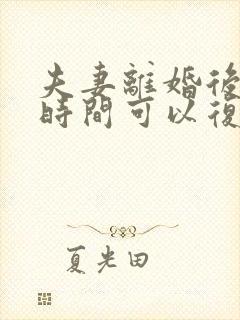 夫妻離婚後
時間可以復
夏光田